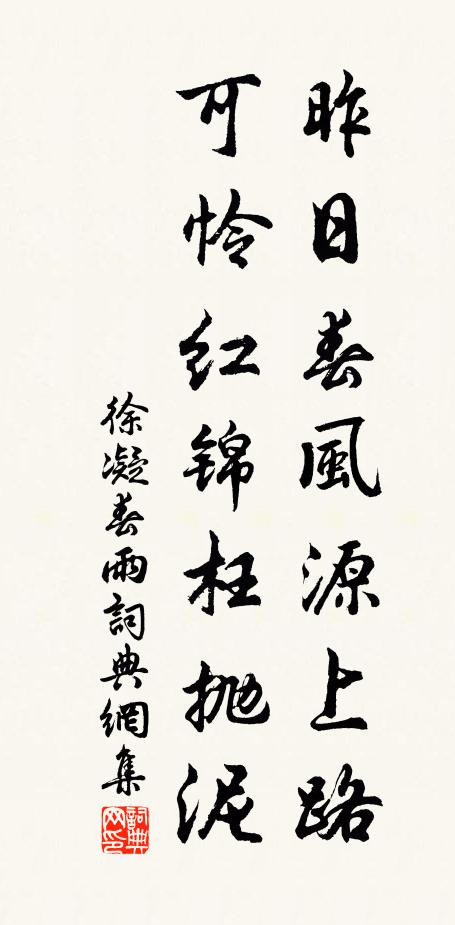 昨日春風源上路
可憐红锦枉抛泥
徐凝春雨詞典網集
詞典网印